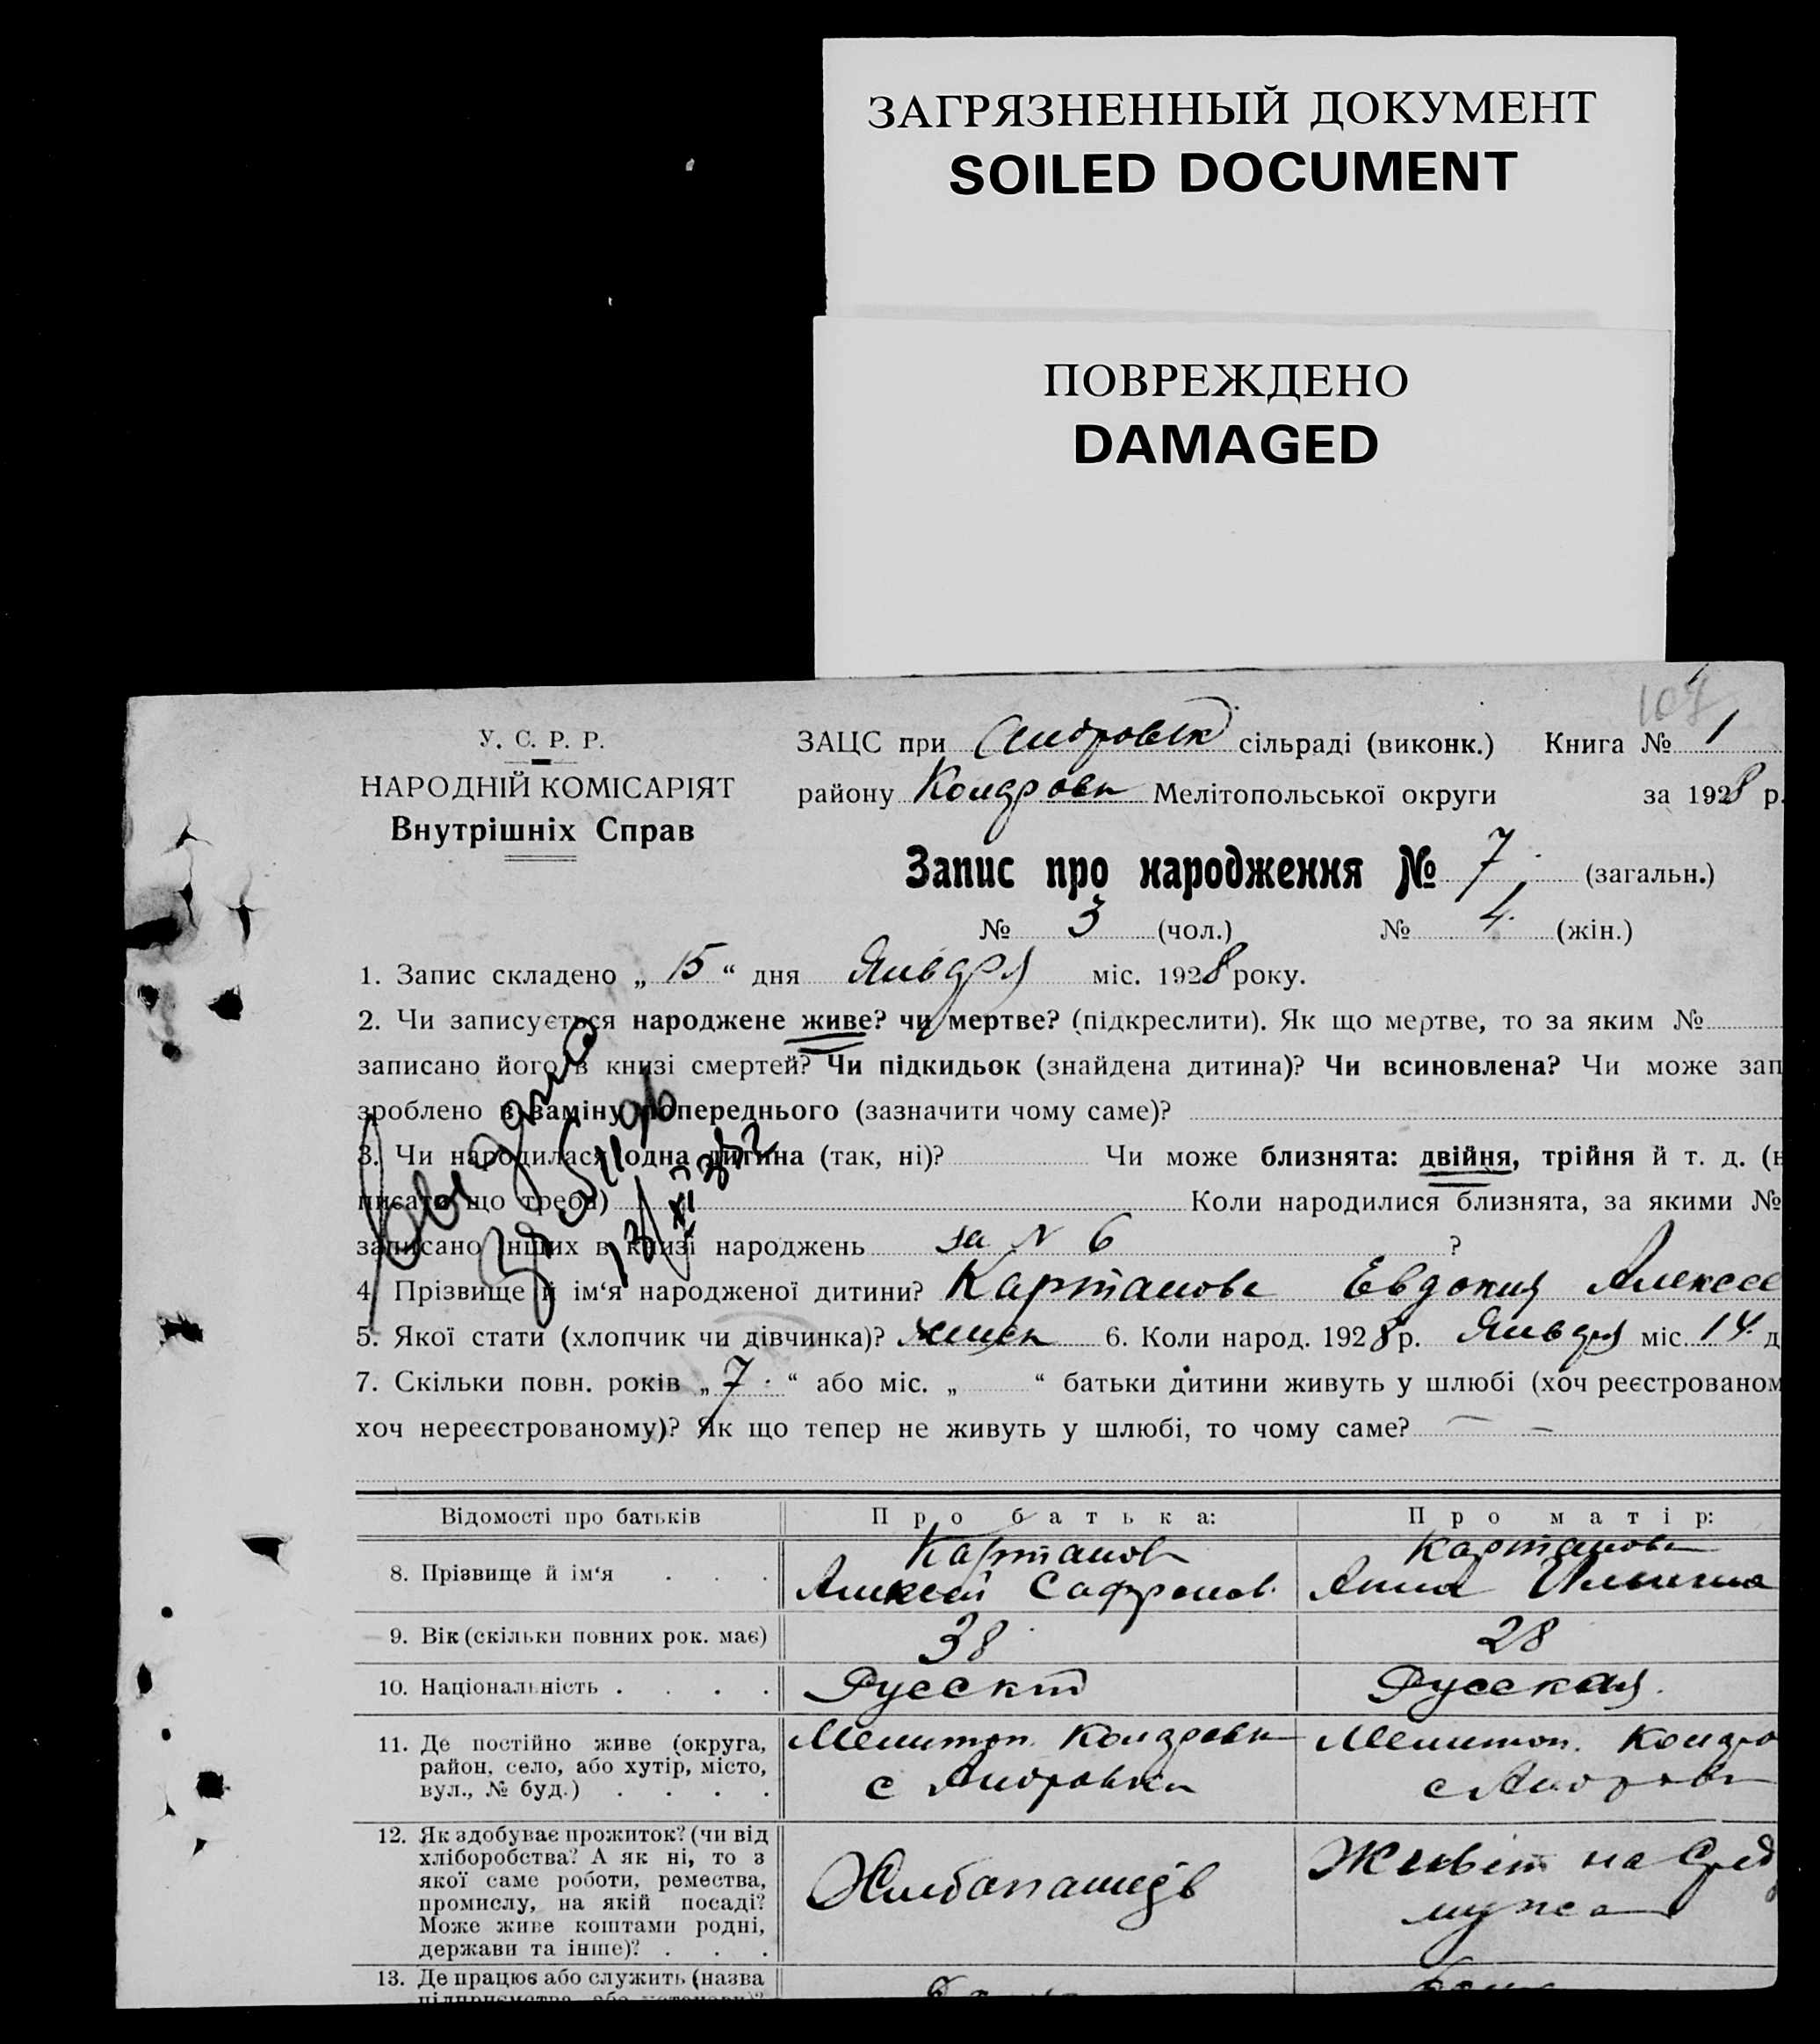 ЗАГРЯЗНЕННЫЙ ДОКУМЕНТ
SOILED DOCUMENT
ПОВРЕЖДЕНО
DAMAGED
107
У. С. Р. Р.
НАРОДНІЙ КОМІСАРІЯТ
Внутрішніх Справ
ЗАЦС при сільраді (виконк.) Книга № 1
району Кондровк Мелітопольської округи за 1928 р.
Запис про народження № 7 (загальн.)
№ 3 (чол.) № 4 (жін.)
1. Запис складено „ 15 “ дня Января міс. 1928 року.
2. Чи записується народжене живе? чи мертве? (підкреслити). Як що мертве, то за яким №
записано його в книзі смертей? Чи підкидьок (знайдена дитина)? Чи всиновлена? Чи може зап
зроблено в заміну попереднього (зазначити чому саме)?
3. Чи народилася одна дитина (так, ні)? Чи може близнята: двійня, трійня й т. д. (н
писати що треба) Коли народилися близнята, за якими №
записано інших в книзі народжень за N 6 ?
4. Прізвище й ім‘я народженої дитини? Картанова Евдокия Алексее
5. Якої стати (хлопчик чи дівчинка)? женск 6. Коли народ. 1928 р. Января міс. 14 д
7. Скільки повн. років „ 7 “ або міс. „ “ батьки дитини живуть у шлюбі (хоч реєстрованом
хоч нереєстрованому)? Як що тепер не живуть у шлюбі, то чому саме?
Відомості про батьків Про батька: Про матір:
8. Прізвище й ім‘я Картанов Картанова
Алексей Сафронов. Анна Ильинна
9. Вік (скільки повних рок. має) 38 28
10. Національність Русскій Русская.
11. Де постійно живе (округа, Мелитоп. Кондровк Мелитоп. Кондро
район, село, або хутір, місто, с с
вул., № буд.)
12. Як здобуває прожиток? (чи від
хліборобства? А як ні, то з Живет на сред
якої саме роботи, ремества, Хлебопашедв
промислу, на якій посаді? мужа
Може живе коштами родні,
держави та інше)?
13. Де працює або служить (назва
підприємства, або установи)?